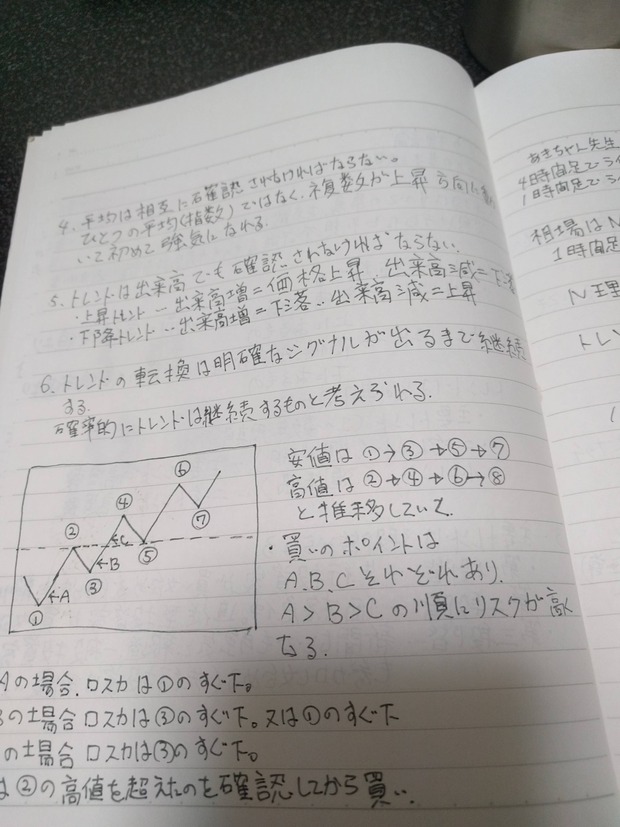 4. 平均は相互に確認されなければならない。
ひとつの平均(指数)ではなく、複数が上昇方向に
いて初めて強気になれる。
5. トレンドは出来高でも確認されなければならない。
・上昇トレンド‥出来高増=価格上昇 出来高減=下落
・下降トレンド‥出来高増=下落‥出来高減=上昇
6. トレンドの転換は明確なシグナルが出るまで継続
する。
確率的にトレンドは継続するものと考えられる。
安値は①→③→⑤→⑦
高値は②→④→⑥→⑧
と推移していて、
・買いのポイントは
A、B、Cそれぞれあり、
A>B>Cの順にリスクが高く
なる。
⑥
④
②
⑦
←C
⑤
←B
③
←A
①
Aの場合、ロスカは①のすぐ下。
Bの場合ロスカは③のすぐ下。又は①のすぐ下
の場合ロスカは③のすぐ下。
は②の高値を超えたのを確認してから買い、
あきちゃん先生
4時間足でライ
1時間足でラ
相場はN
1時間足
N理
トレン